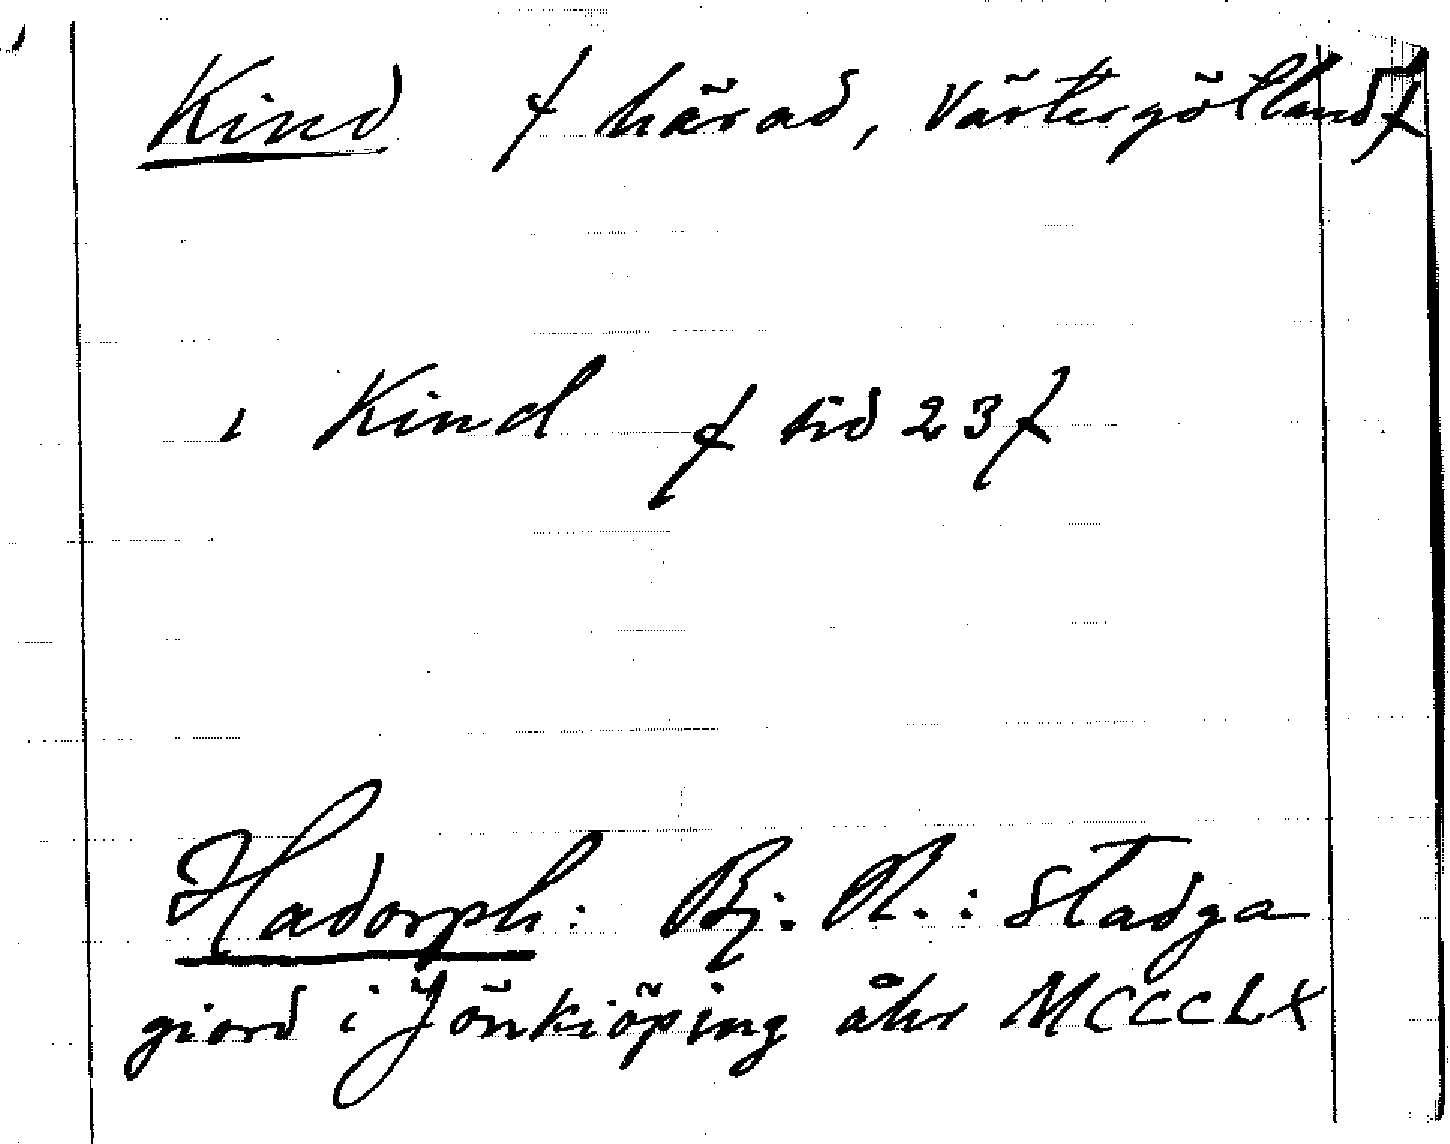 Kind f härad, Västergötland f
i Kind f sid 23 f
Hadorph: Bj. R.: Stadga
giord i Jönkiöping åhr MCCCLX